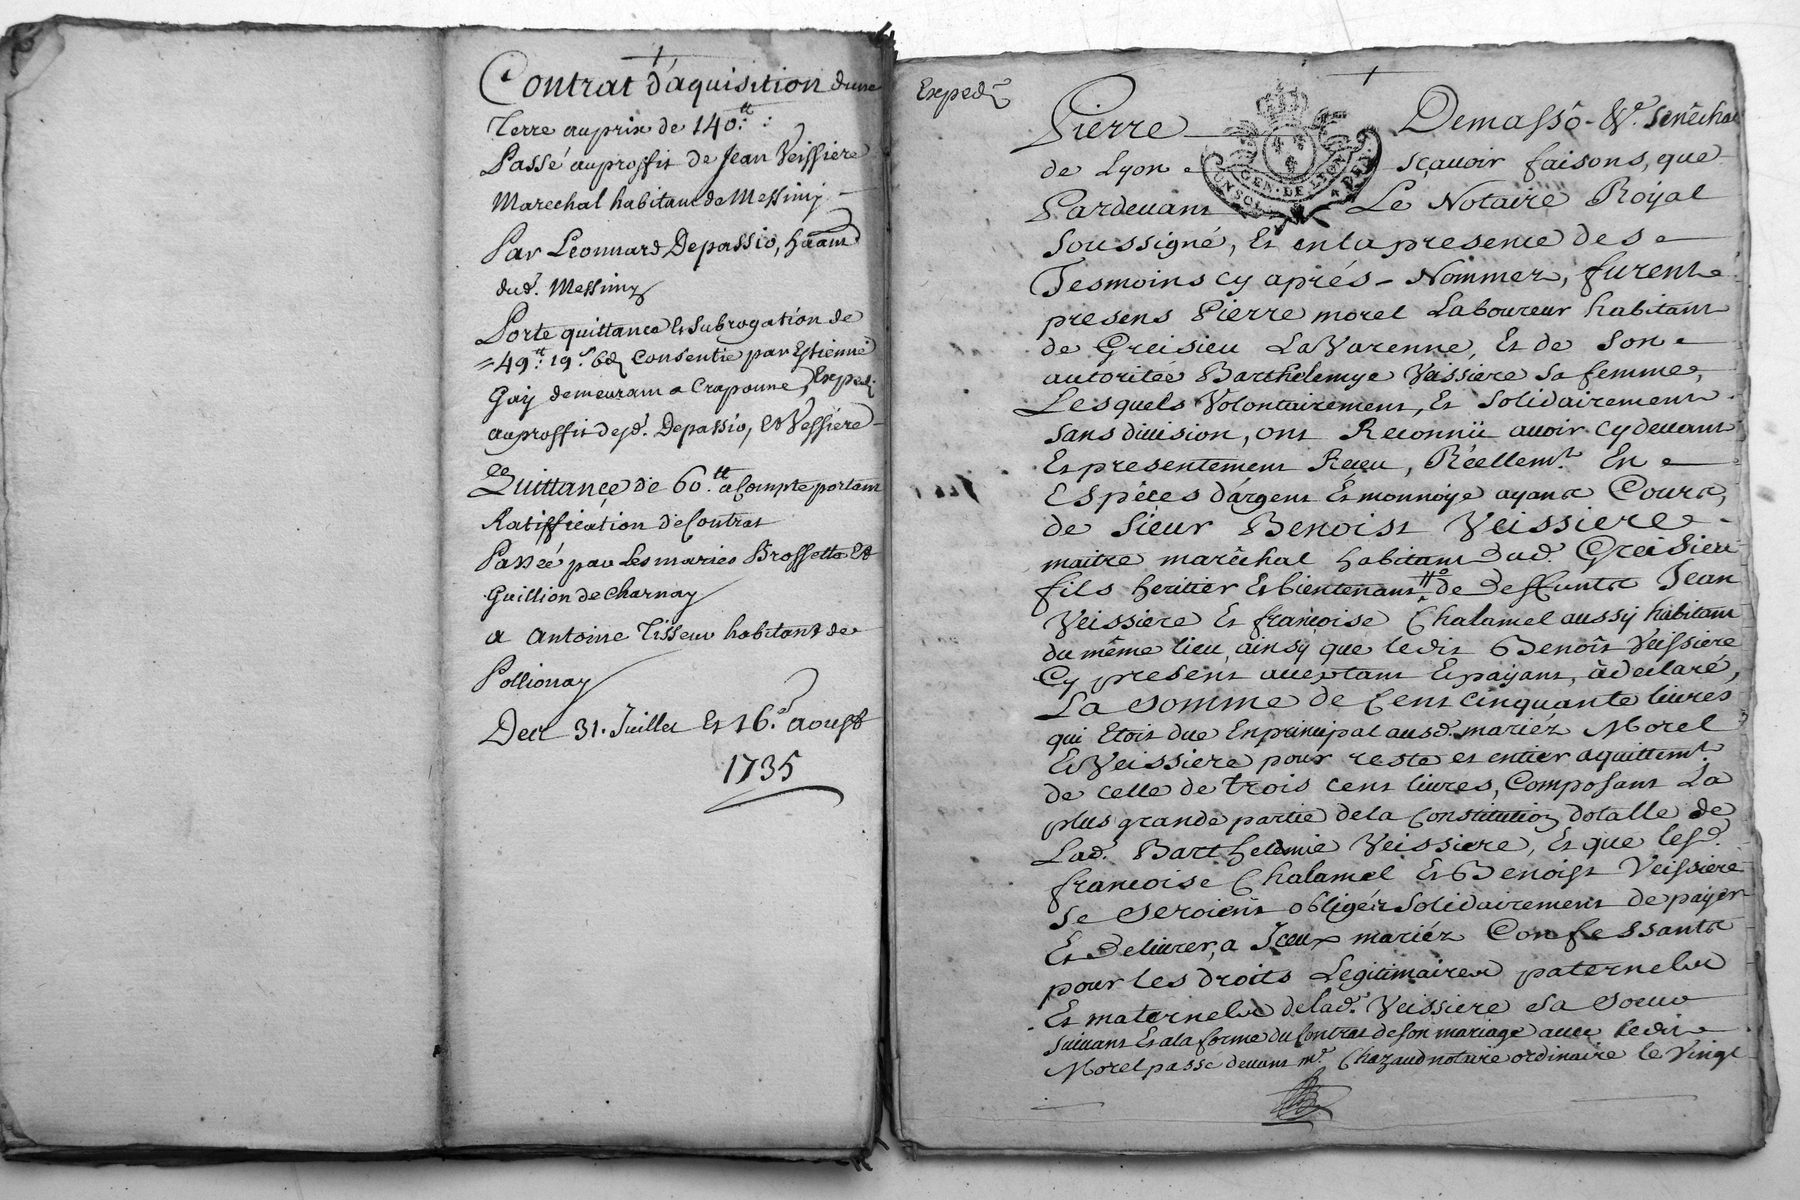 Contrat d'aquisition dune
Terre au prix de 140.tt
Passé au proffit de Jean Veissiere
Marechal habitant de Messimy
Par Leonnard Depassio, haant
dud. Messimy
Porte quittance et subrogation de
= 49.tt 19.s 6d Consentie par Estienne
Gay demeurant a Craponne, Exped.
au proffit desd. Depassio, et Vessiére
Quittance de 60.tt a Compte portant
Ratiffication de Contrat
Passéé par les mariés Brossette et
Guillion de Charnay
a Antoine Tisseur habitant de
Pollionay
Des 31. Juillet et 16.e aoust
1735
Exped.
Pierre Demasso - &.a Senêchal
de Lyon sçavoir faisons, que
GEN. DE LYON
Pardevant Le Notaire Royal
Soussigné, Et en la presence des
Tesmoins cy aprés - Nommez, furent
presens Pierre morel Laboureur habitant
de Greisieu La Varenne, Et de son
autoritee Barthelemye Veissiere sa femme,
Lesquels Volontairement, Et Solidairement
sans division, ont Reconnü avoir cy devant
Et presentement Receu, Réellemt. En
Espêces d'argent Et monnoye ayant Cours,
de Sieur Benoist Veissiere
maitre marêchal habitant dud. Greisieu
fils heritier Et bientenant de Deffunts Jean
Veissiere Et françoise Chalamel aussy habitant
du même lieu, ainsy que ledit Benoît Veissiere
Cy present acceptant Et payant, à declaré,
La somme de Cent cinquante livres
qui Etoit due En principal ausd. mariéz Morel
Et Veissiere pour reste et entier aquittemt.
de celle de trois cent livres, Composant La
plus grande partie de la Constitution dotalle de
Lad. Barthelemie Veissiere, Et que lesd.
françoise Chalamel Et Benoist Veissiere
se seroient obligéz Solidairement de payer
Et Delivrer, a Iceux mariéz Confessants
pour les droits Legitimaires paternels
Et maternels de lad. Veissiere sa soeur
suivant Et a la forme du Contrat de son mariage avec ledit
Morel passé devant me. Chazaud notaire ordinaire le Vingt